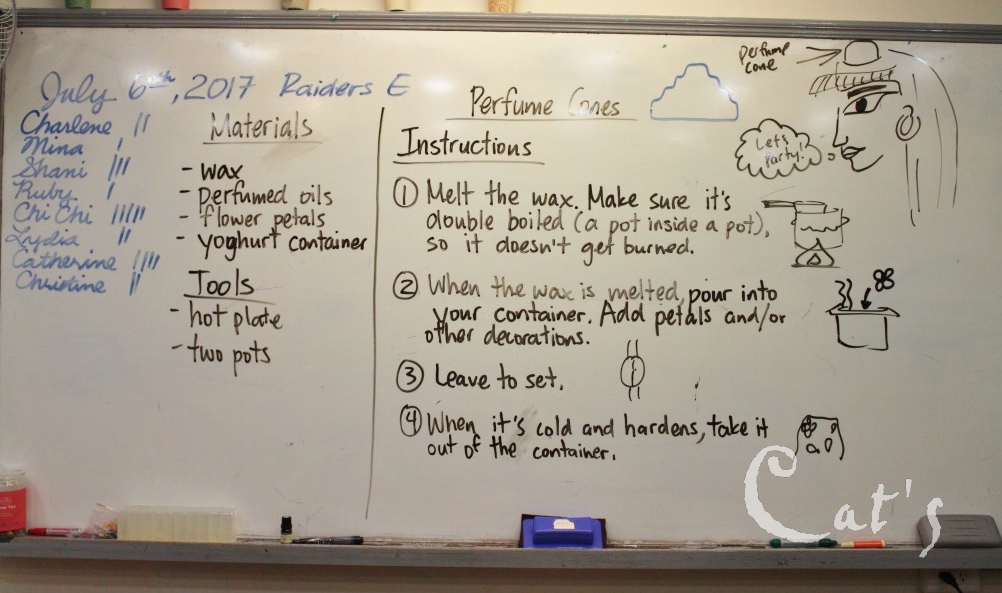 July 6th, 2017 Raiders E
Charlene ||
Mina |
Shani |||
Ruby |
Chi Chi |||||
Lydia ||
Catherine ||||
Christine ||
Materials
- wax
- perfumed oils
- flower petals
- yoghurt container
Tools
- hot plate
- two pots
Perfume Cones
Instructions
① Melt the wax. Make sure it's
double boiled (a pot inside a pot),
so it doesn't get burned.
② When the wax is melted, pour into
your container. Add petals and/or
other decorations.
③ Leave to set.
④ When it's cold and hardens, take it
out of the container.
perfume
cone
Let's
Party!
Cat's